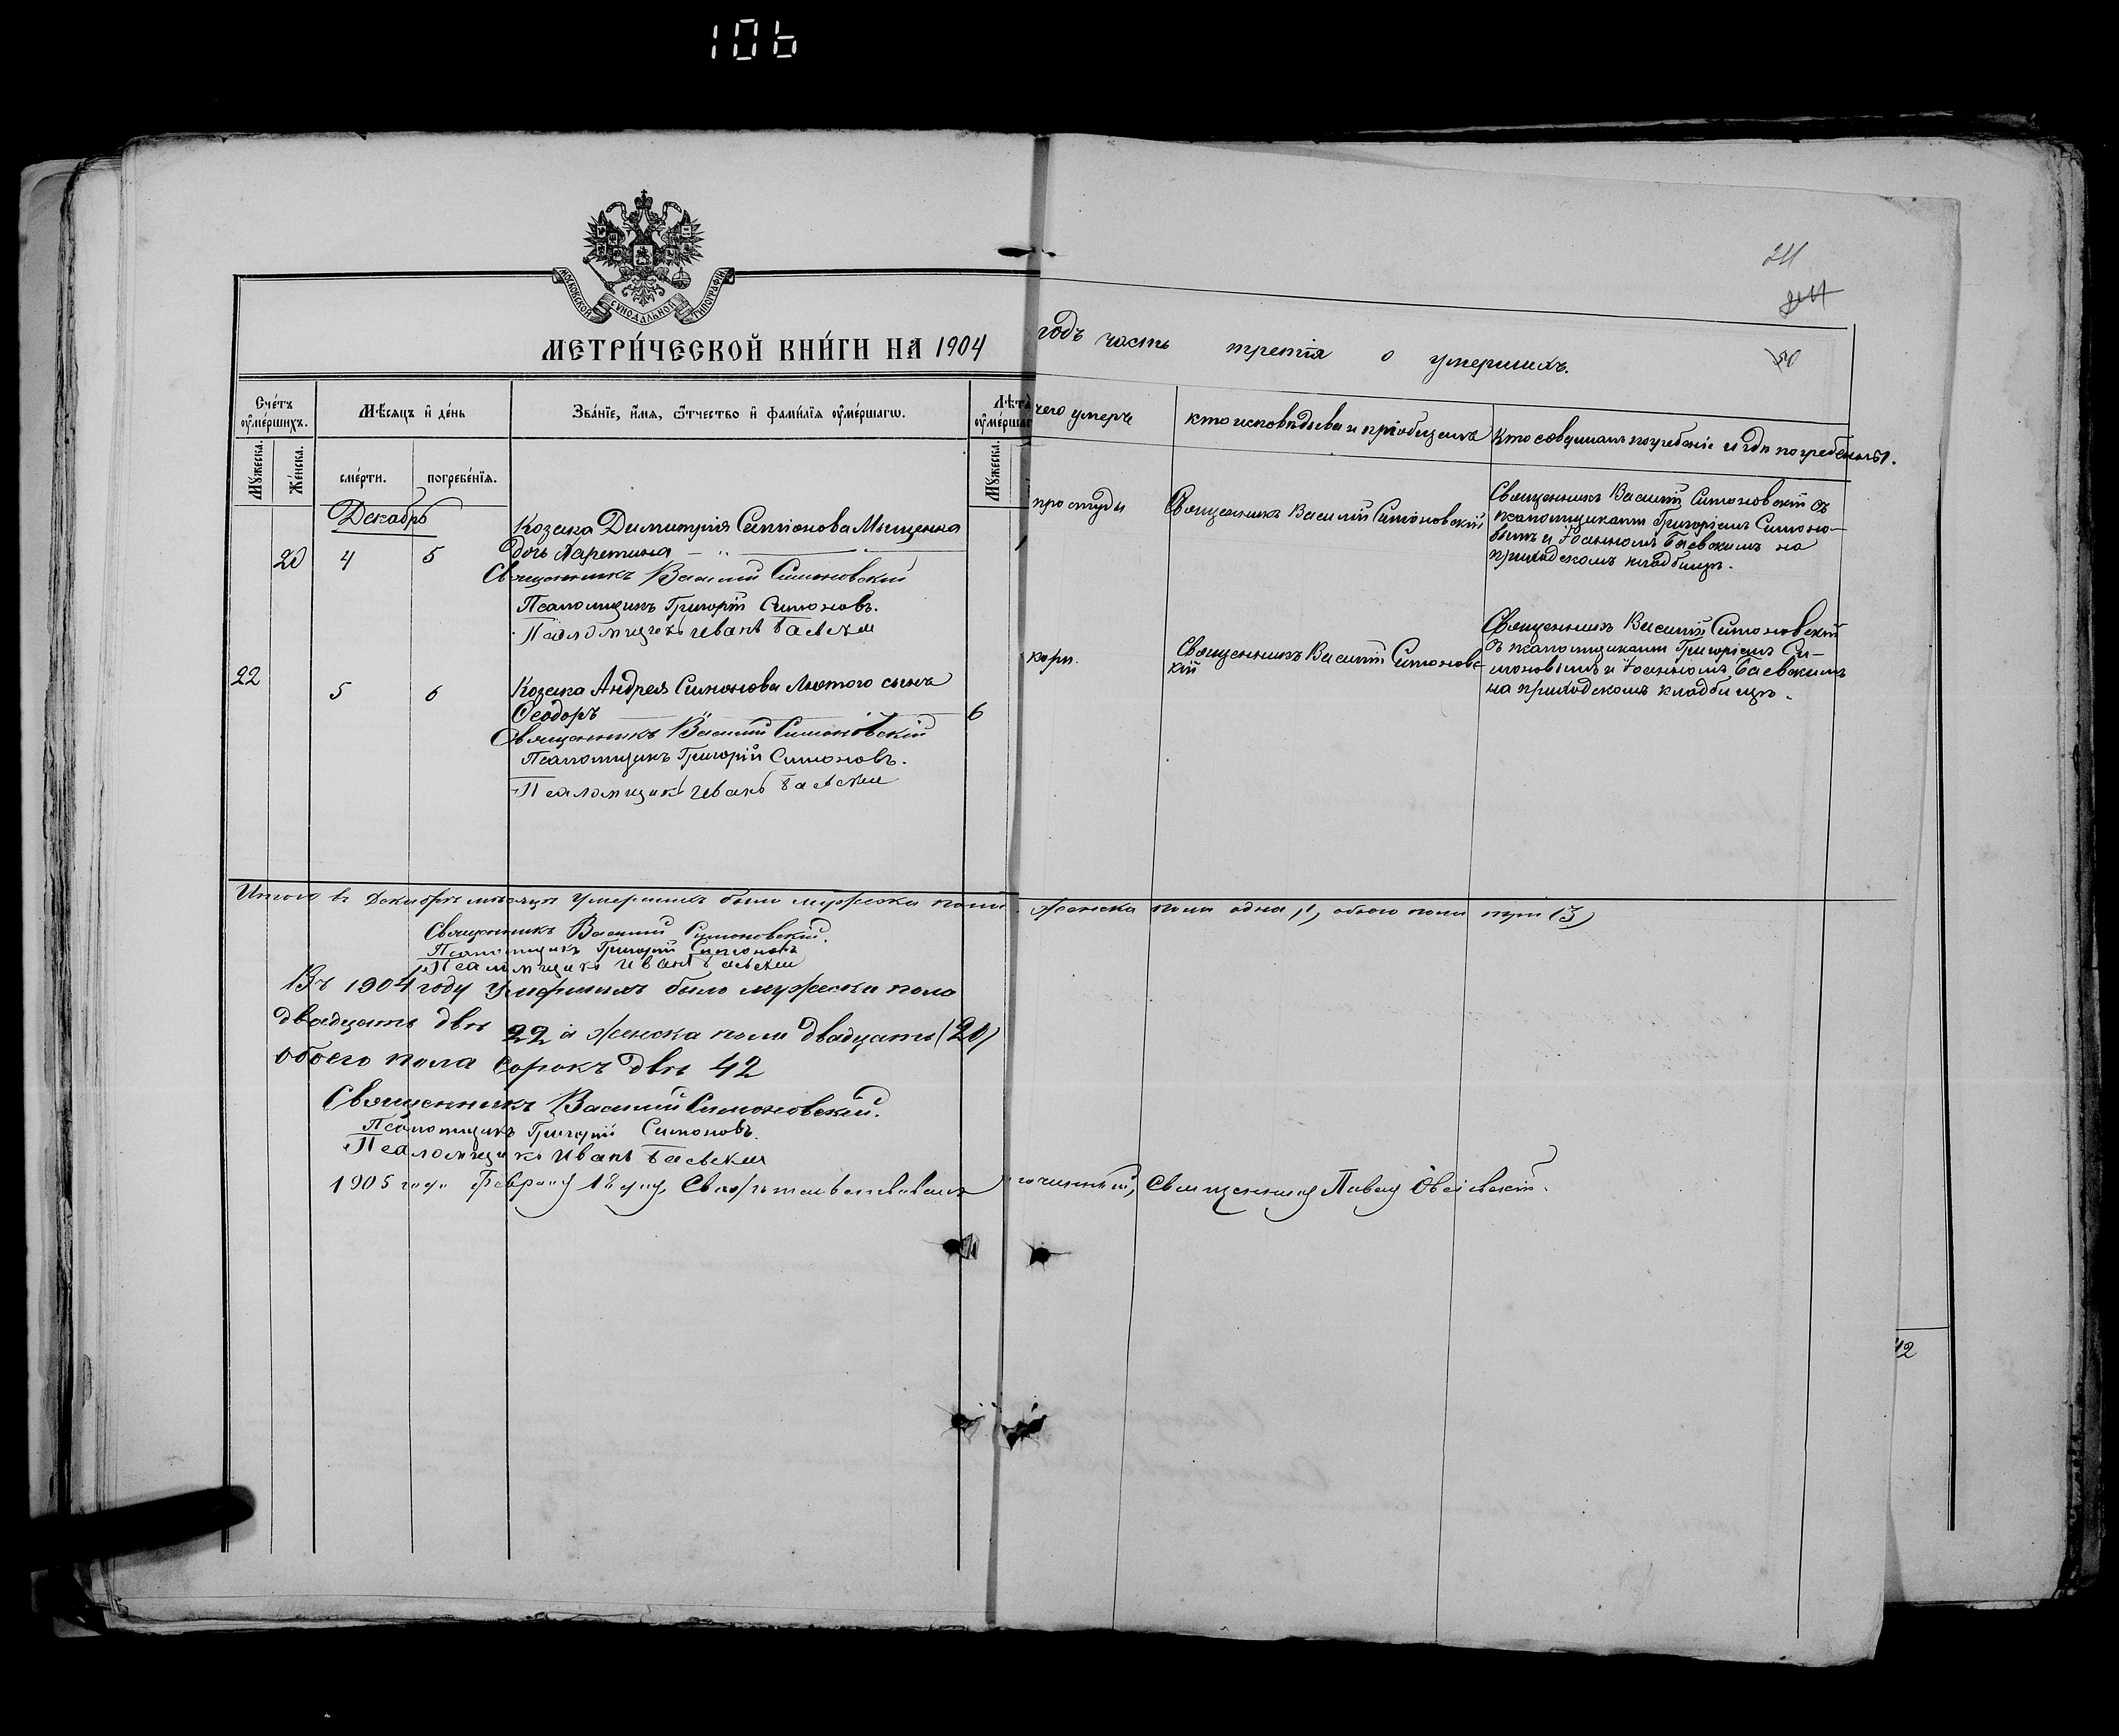 106
24
МОСКОВСКОЙ СѴНОДАЛЬНОЙ ТИПОГРАФІИ
МЕТРИ́ЧЕСКОЙ КНИ́ГИ НА 1904 годъ часть третія о умершихъ.
50
Счётъ оу҆ме́ршихъ.
Мѣсяцъ и҆ де́нь
Зва́нїе, и҆́мя, ѻ҆́тчество и҆ фами́лїя оу҆ме́ршагѡ.
Лѣта̀ оу҆ме́ршаг
чего умеръ
кто исповѣдывал и пріобщалъ
Кто совершалъ погребеніе и гдѣ погребены.
Мꙋ́жеска.
Же́нска.
сме́рти.
погребе́нїѧ.
Мꙋ́жеска.
Декабрь
20 4 5
Козака Димитрія Симіонова Мищенка
дочь Харитина
Священникъ Василій Симоновскій
Псаломщикъ Григорій Симоновъ.
Псаломщикъ Иванъ Баевскій
1
простуды
Священникъ Василій Симоновскій
Священникъ Василій Симоновскій съ
псаломщиками Григоріемъ Симоно-
вымъ и Іоанномъ Баевскимъ на
приходскомъ кладбищѣ.
22 5 6
Козака Андрея Симонова Лютого сынъ
Ѳеодоръ
6
Священникъ Василій Симоновскій
Псаломщикъ Григорій Симоновъ.
Псаломщикъ Иванъ Баевскій
кори.
Священникъ Василій Симоновс-
кій
Священникъ Василій Симоновскій
съ псаломщиками Григоріемъ Си-
моновымъ и Іоанномъ Баевскимъ
на приходскомъ кладбищѣ.
Итого въ Декабрѣ мѣсяцѣ умершихъ было мужска пола женска пола одна 1, обоего пола три (3)
Священникъ Василій Симоновскій.
Псаломщикъ Григорій Симоновъ
Псаломщикъ Иванъ Баевскій
Въ 1904 году умершихъ было мужска пола
двадцать два 22 а женска пола двадцать (20)
обоего пола сорокъ два 42
Священникъ Василій Симоновскій.
Псаломщикъ Григорій Симоновъ.
Псаломщикъ Иванъ Баевскій
1905 года Февраля 18 дня, Священникъ Павелъ
42